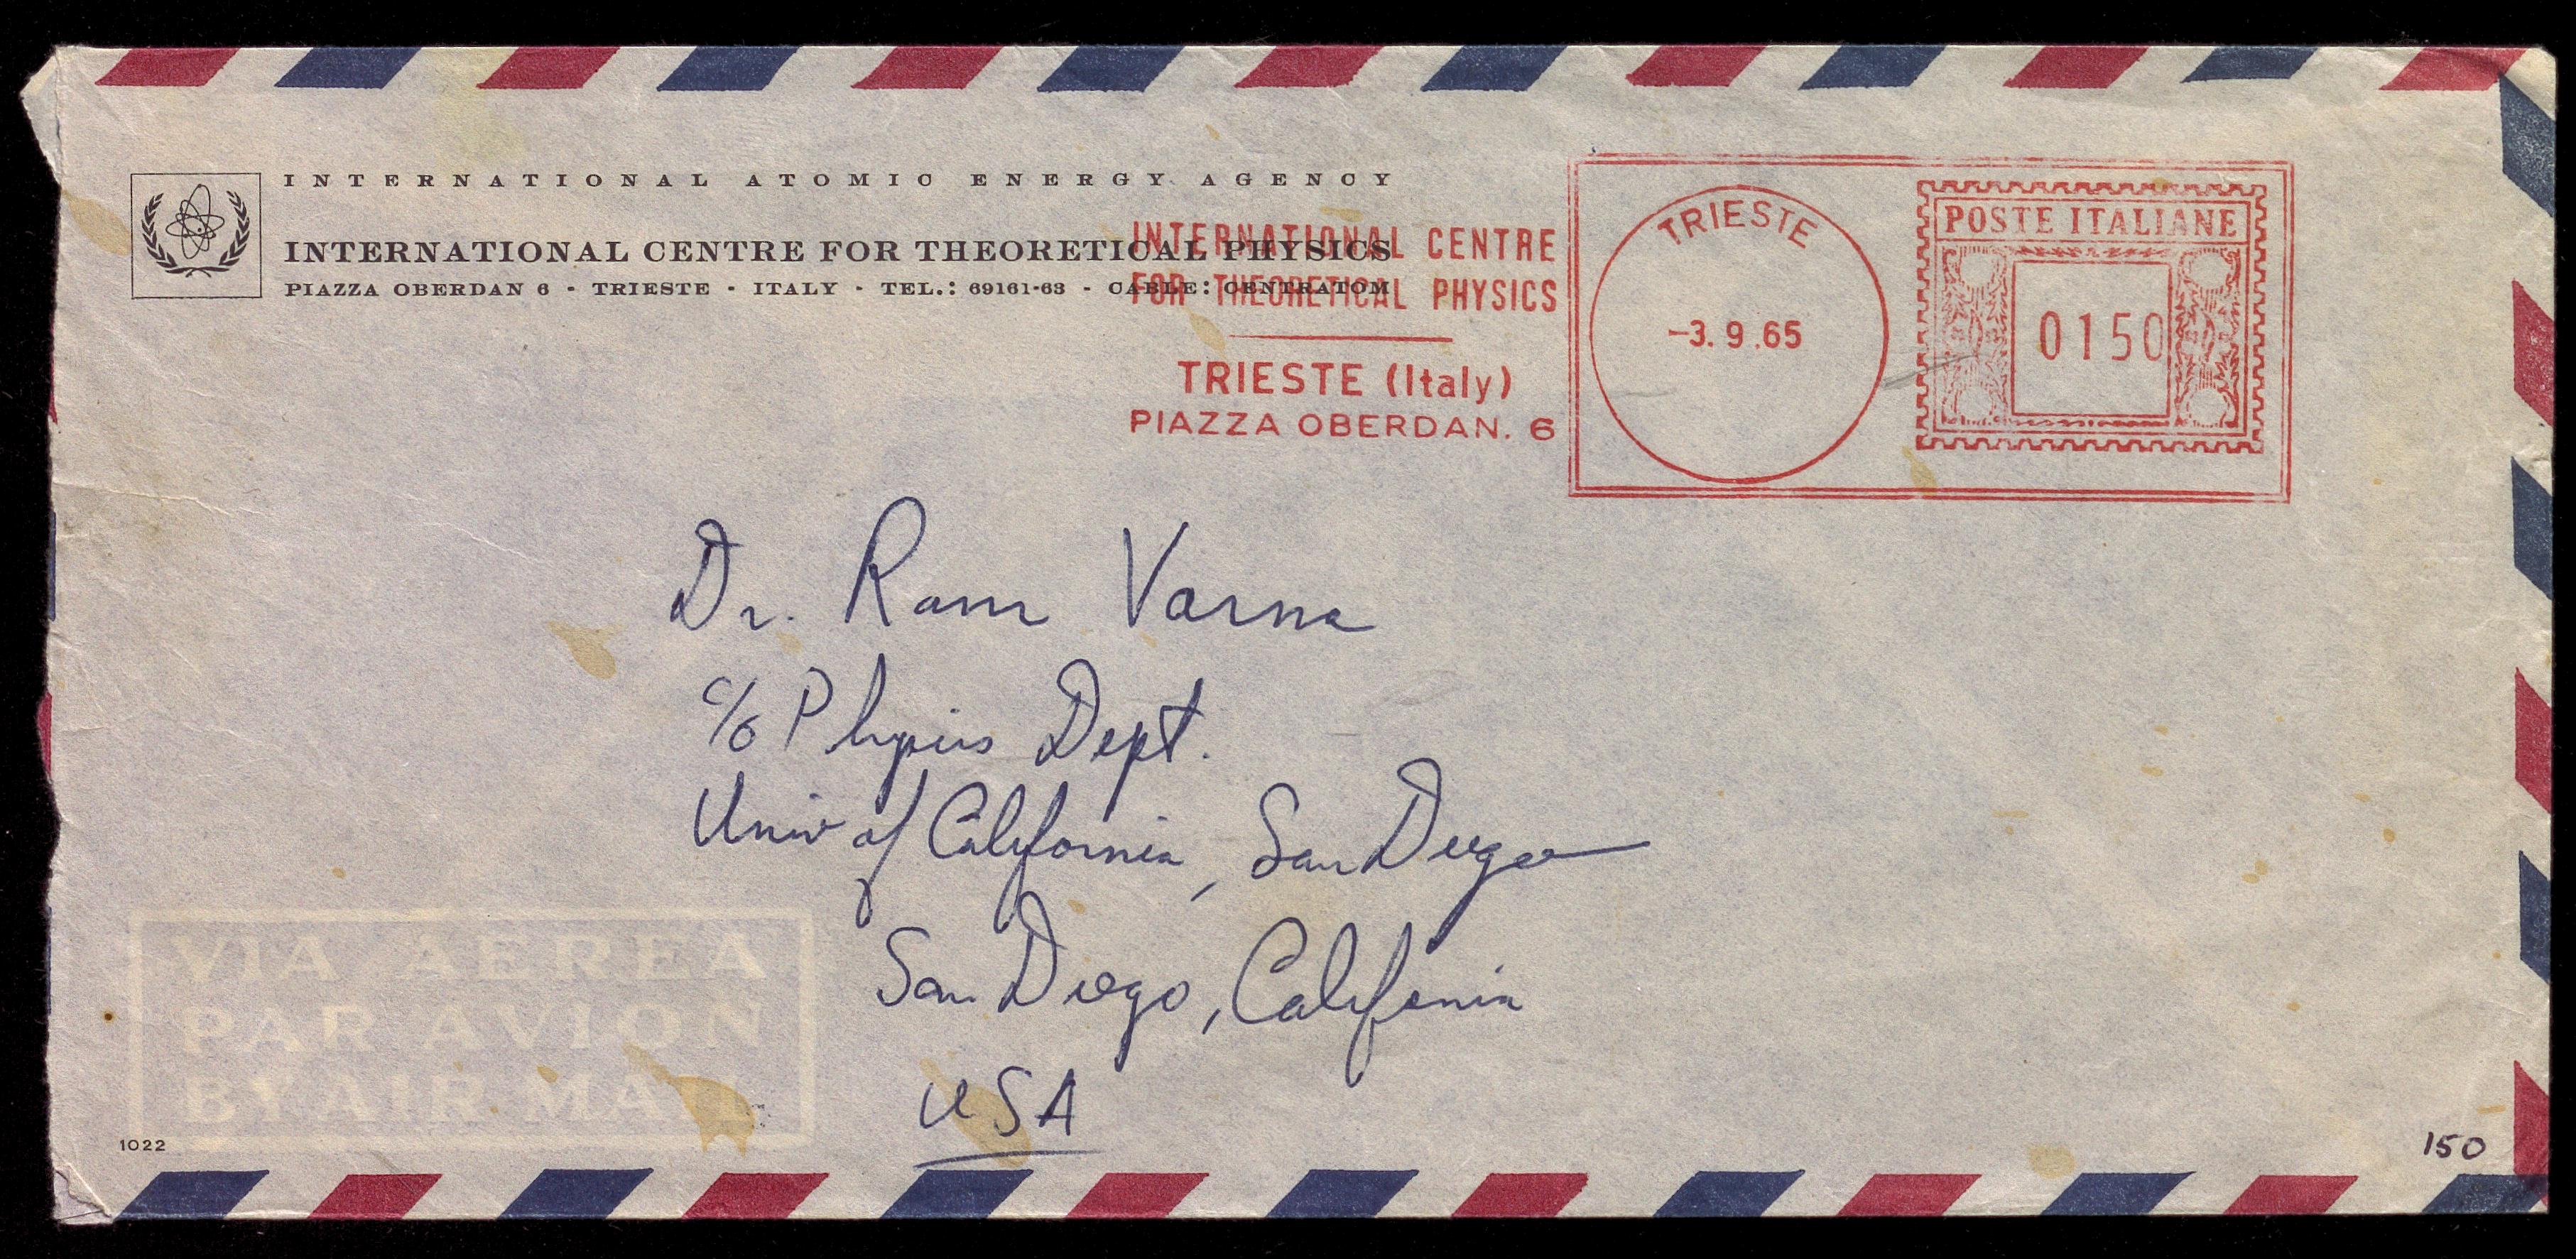 INTERNATIONAL ATOMIC ENERGY AGENCY
INTERNATIONAL CENTRE FOR THEORETICAL PHYSICS
PIAZZA OBERDAN 6 - TRIESTE - ITALY - TEL.: 69161-63 - CABLE: CENTRATOM
INTERNATIONAL CENTRE
FOR THEORETICAL PHYSICS
TRIESTE (Italy)
PIAZZA OBERDAN. 6
TRIESTE
-3. 9.65
POSTE ITALIANE
0150
Dr. Ram Varma
c/o Physics Dept.
Univ of California, San Diego
San Diego, California
USA
VIA AEREA
PAR AVION
BY AIR MAIL
1022
150